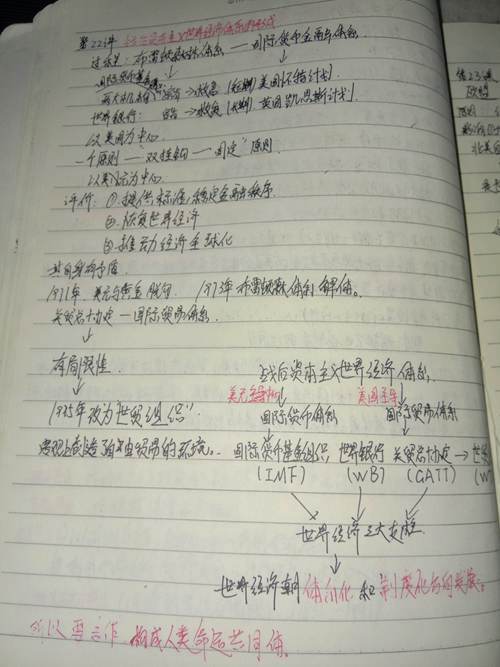 第22讲 战后资本主义世界经济体系的形成
过程: 布雷顿森林体系 —— 国际货币金融体系.
国际货币基金
两大机构 → 救急 (短期) 美国怀特计划
世界银行: → 救贫 (长期) 英国凯恩斯计划
以美国为中心
一个原则 —— 双挂钩 —— "固定" 原则
以美元为中心
评价: ①. 提供标准, 稳定金融秩序.
②. 恢复世界经济
③. 推动经济全球化
1971年 美元与黄金脱钩. 1973年布雷顿森林体系解体.
关贸总协定 — 国际贸易体系
↓
有局限性
↓
1995年改为"世贸组织"
自由贸易的环境.
战后资本主义世界经济体系.
美元主导 美国主导
国际货币体系 国际贸易体系
国际货币基金组织 世界银行 关贸总协定 → 世
(IMF) (WB) (GATT) (W
世界经济三大支柱
↓
世界经济朝体系化和制度化方向发展.
所以要合作 构成人类命运共同体.
第23讲
欧盟
原则
北美自